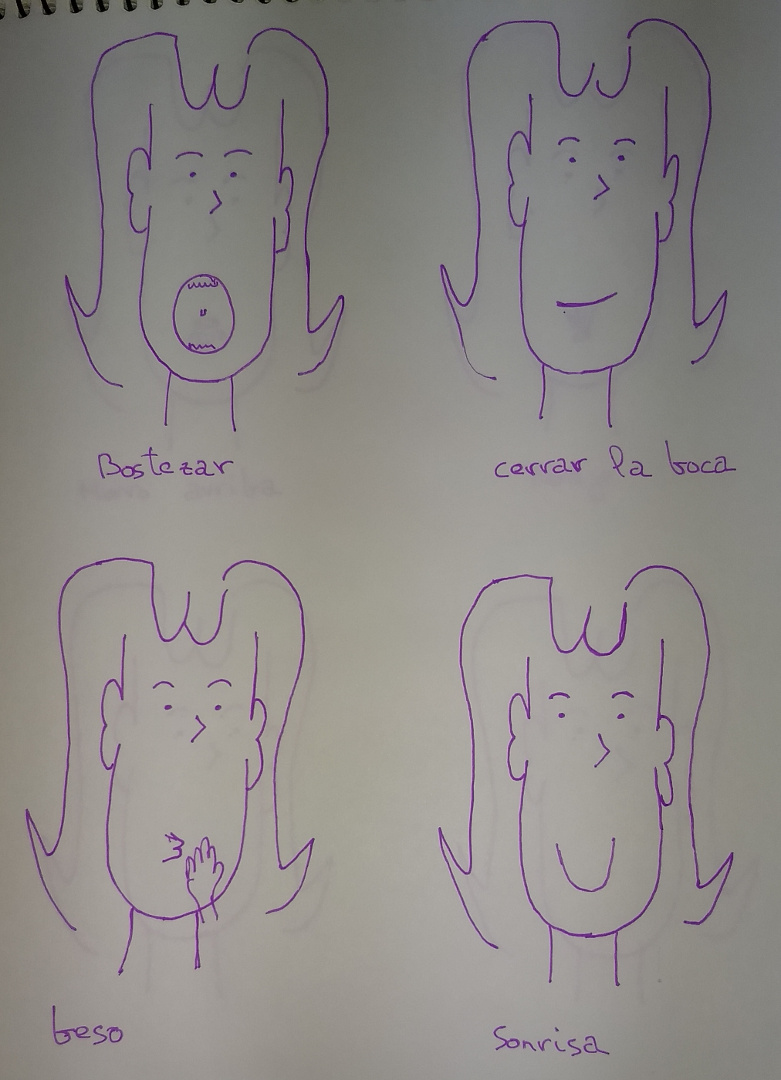 Bostezar
cerrar la boca
beso
Sonrisa